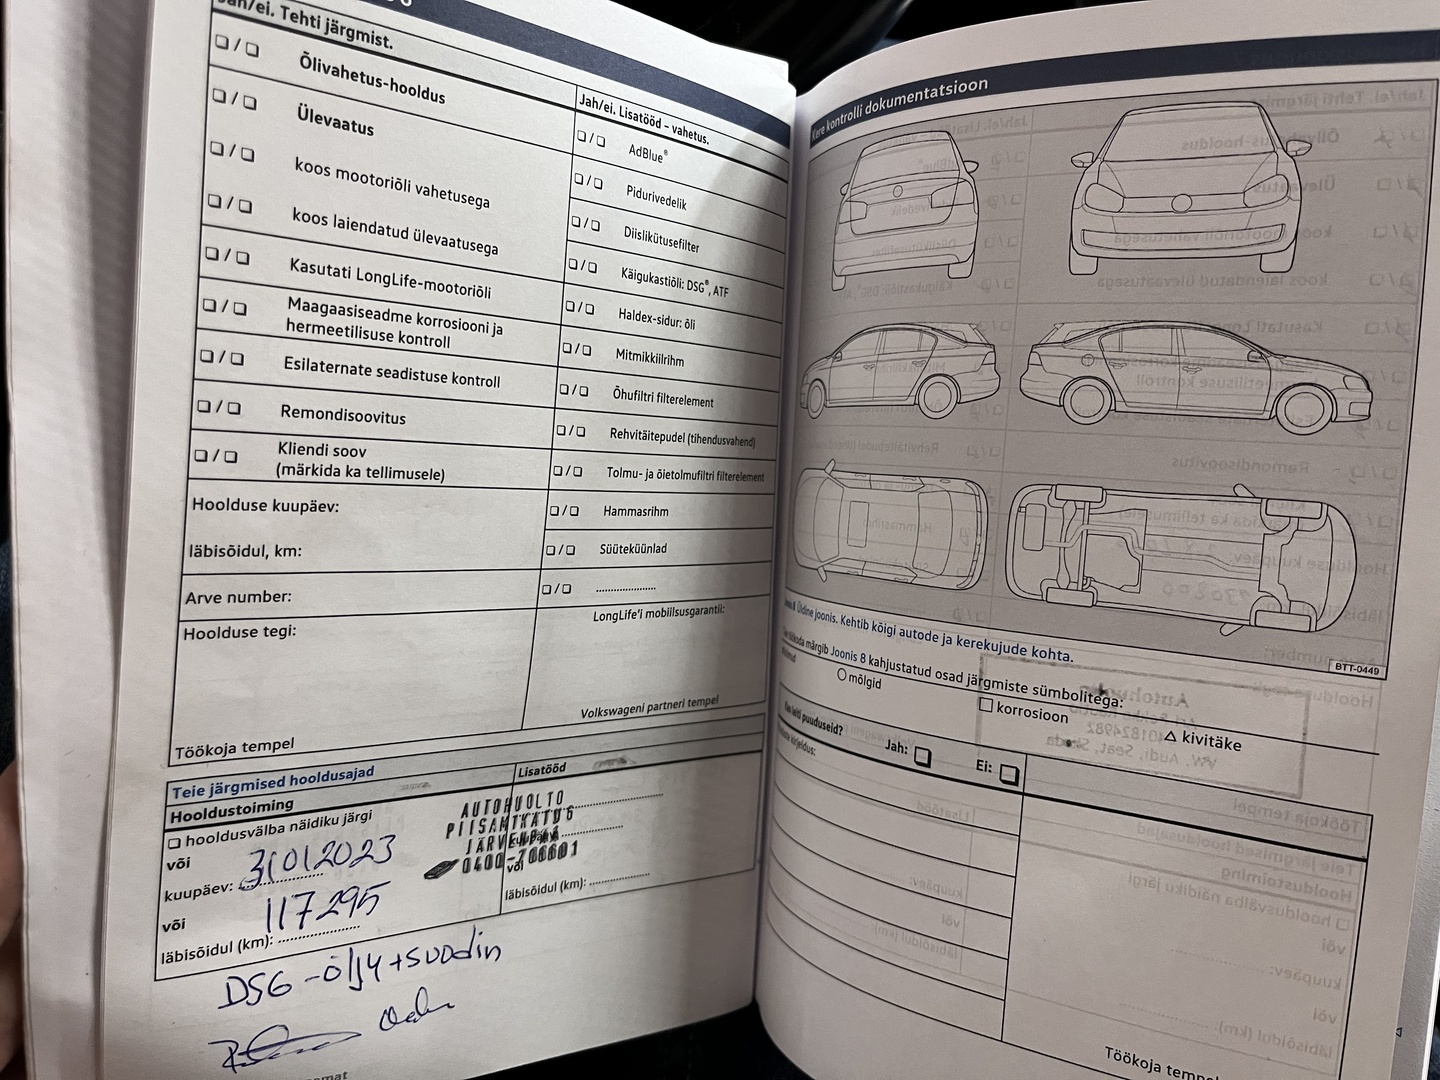 Jah/ei. Tehti järgmist.
Õlivahetus-hooldus
Ülevaatus
koos mootoriõli vahetusega
koos laiendatud ülevaatusega
Kasutati LongLife-mootoriõli
Maagaasiseadme korrosiooni ja
hermeetilisuse kontroll
Esilaternate seadistuse kontroll
Remondisoovitus
Kliendi soov
(märkida ka tellimusele)
Hoolduse kuupäev:
läbisõidul, km:
Arve number:
Hoolduse tegi:
Töökoja tempel
Jah/ei. Lisatööd – vahetus.
AdBlue®
Pidurivedelik
Diislikütusefilter
Käigukastiõli: DSG®, ATF
Haldex-sidur: õli
Mitmikkiilrihm
Õhufiltri filterelement
Rehvitäitepudel (tihendusvahend)
Tolmu- ja õietolmufiltri filterelement
Hammasrihm
Süüteküünlad
LongLife'i mobiilsusgarantii:
Volkswageni partneri tempel
Teie järgmised hooldusajad
Hooldustoiming
Lisatööd
hooldusvälba näidiku järgi
või
kuupäev: 31012023
või
117295
läbisõidul (km):
AUTOHUOLTO
PIISAMKATU 6
JÄRVENPÄÄ
0400-706601
kuupäev:
või
läbisõidul (km):
DSG-öljy+suodin
Kere kontrolli dokumentatsioon
BTT-0449
Joonis 8 Üldine joonis. Kehtib kõigi autode ja kerekujude kohta.
töökoda märgib Joonis 8 kahjustatud osad järgmiste sümbolitega:
mõlgid
korrosioon
kivitäke
Kas leiti puuduseid?
Jah:
Ei:
kirjeldus:
Töökoja tempel